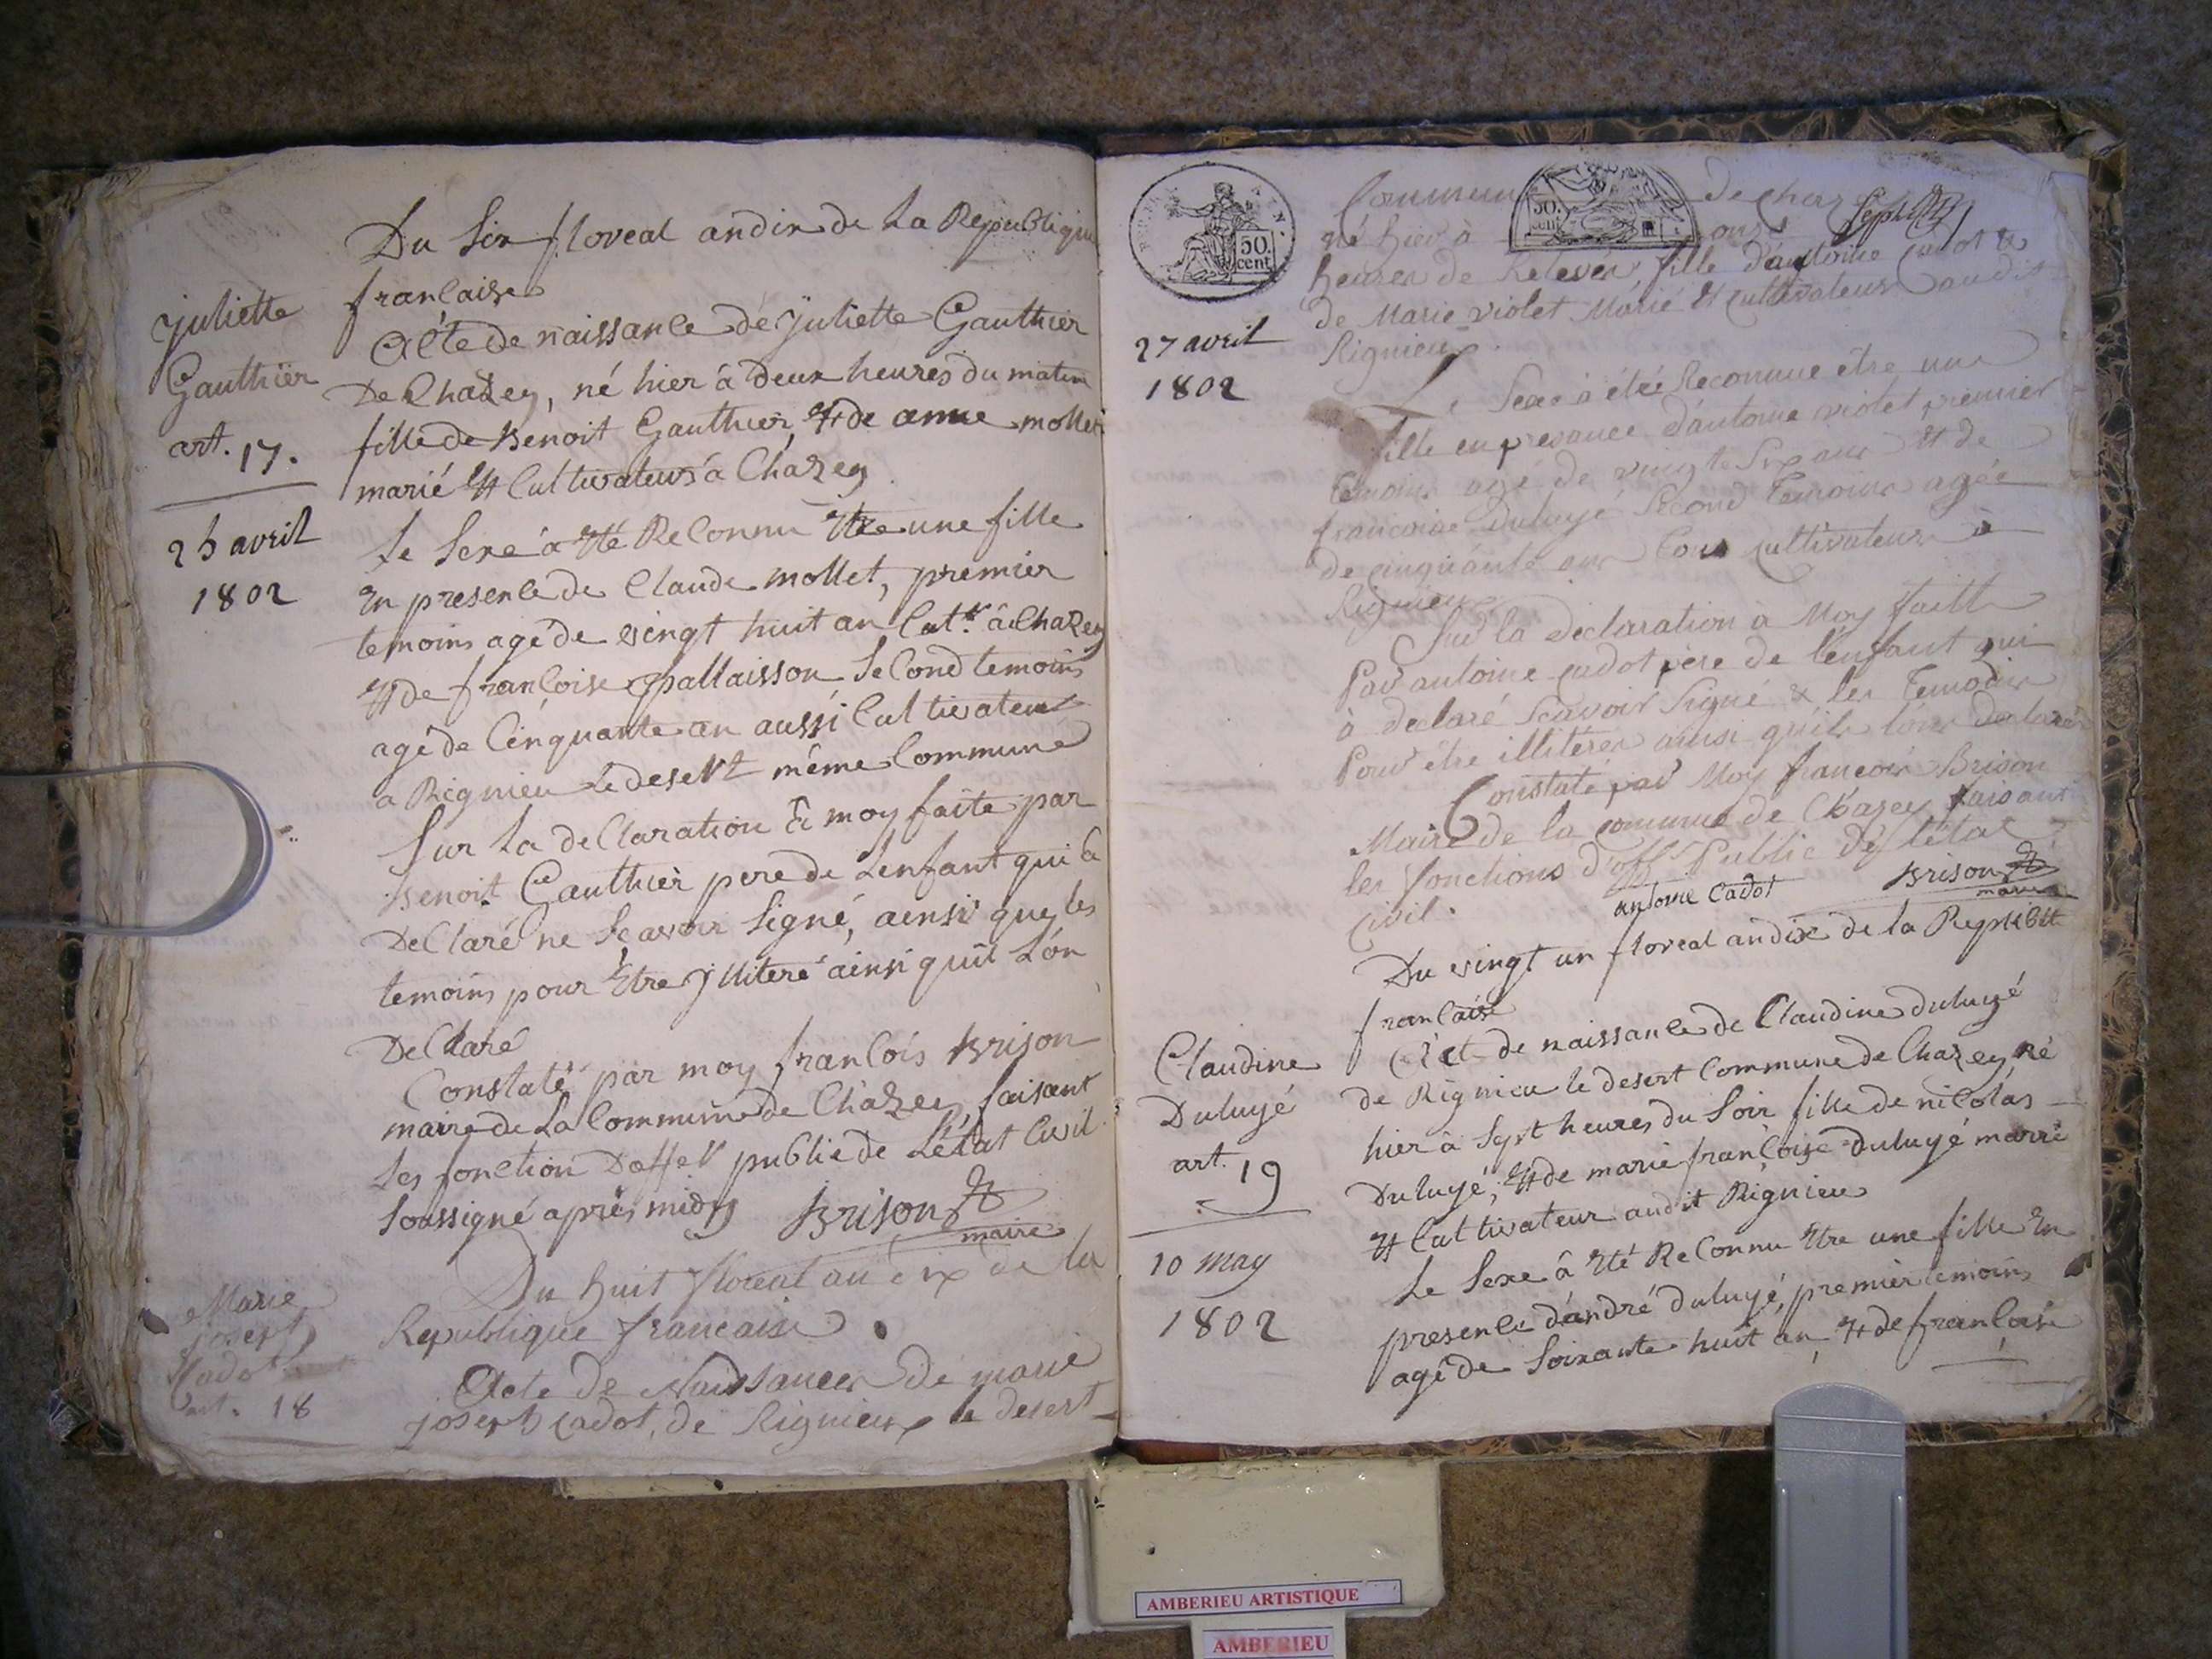 Du Six floreal an dix de La Republique
francaise
Juliette
Gauthier
art. 17.
25 avril
1802
Acte de naissance de Juliette Gauthier
De Chazey, né hier à deux heures du matin
fille de Benoit Gauthier, et de anne mollet
marié et Cultivateurs à Chazey
Le Sexe a été Reconnu être une fille
En presence de Claude mollet, premier
temoins agé de vingt huit an Cult.r à Chazey
et de françoise pallaisson Second temoins
agé de Cinquante an aussi Cultivateur
a Rignieu Le desert même Commune
Sur La declaration à moy faite par
Benoit Gauthier pere de Lenfant qui a
Declaré ne Scavoir Signé, ainsi que les
temoins pour Etre Jlliteré ainsi quil L'on
Declaré
Constaté par moy francois Brison
maire de La Commune de Chazey, faisant
Les fonction public de L'état Civil
Soussigné après midy Brison
maire
Du huit floreal an dix de la
Republique francaise
Marie
joseph
Cadot
art. 18
Acte de Naissance de marie
joseph Cadot, de Rignieux le desert
50
cent
Commun de
50.
cent
né hier à onze
heures de fille d'antoine Cadot &
de Marie violet Marié et cultivateur audit
Rignieux
27 avril
1802
Le Sexe à étée Reconnue être une
fille en presance d'antoine violet premier
temoins agé de vingt Six ans et de
francoise Duluyé Second temoins agée
de cinquante ans tous cultivateurs à
Rignieux
Sur la declaration à Moy faitte
Par antoine cadot père de l'enfant qui
à declaré Scavoir Signé & les temoins
Pour être illiterés ainsi quils l'ons declaré
Constaté par Moy francois Brison
Maire de la commune de Chazey faisant
les fonctions d'off.r Public de l'état
civil.
antoine Cadot
Brison
maire
Du vingt un floreal an dix de la Republi
francaise
Claudine
Duluyé
art. 19
10 may
1802
Act de naissance de Claudine duluyé
de Rignieu le desert Commune de Chazey, né
hier à Sept heures du Soir fille de nicolas
Duluyé, et de marie françoise duluyé marié
et Cultivateur audit Rignieu
Le Sexe à été Reconnu Etre une fille En
presence d'andré duluyé, premier temoins
agé de Soixante huit an, et de francoise
AMBERIEU ARTISTIQUE
AMBERIEU